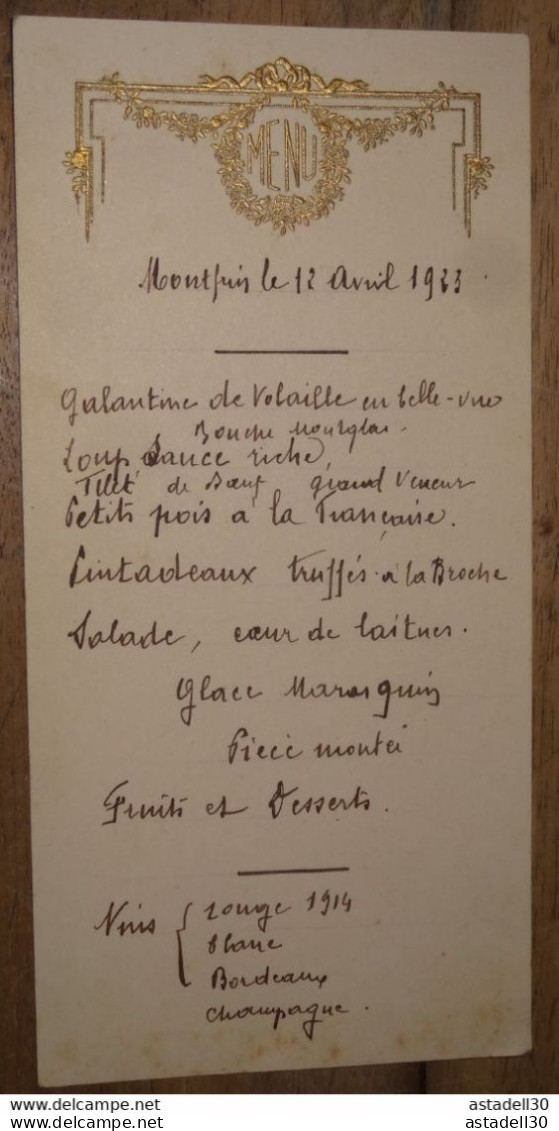 MENU
Montfrin le 12 Avril 1933
Galantine de Volaille en belle-vue
Bouché Montglas.
Loup Sauce riche,
Filet de Bœuf grand Veneur
Petits pois à la Française.
Pintadeaux truffés à la Broche
Salade, cœur de laitues.
Glace Marasquin
Pièce montée
Fruits et Desserts.
Vins { rouge 1914
blanc
Bordeaux
champagne.
https://www.delcampe.net
astadell30
https://www.delcampe.net
astadell30